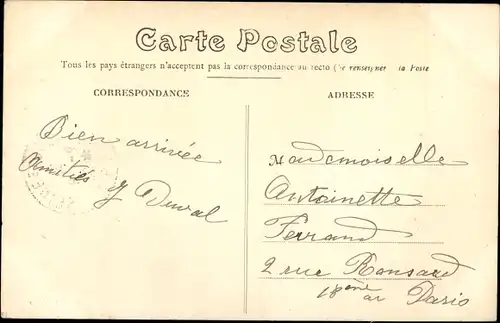 Carte Postale
Tous les pays étrangers n'acceptent pas la correspondance au recto (Se renseigner à la Poste
CORRESPONDANCE
Bien arrivée
Amitiés
Y Duval
ADRESSE
Mademoiselle
Antoinette
Ferrand
2 rue Ronsard
18ème ar Paris